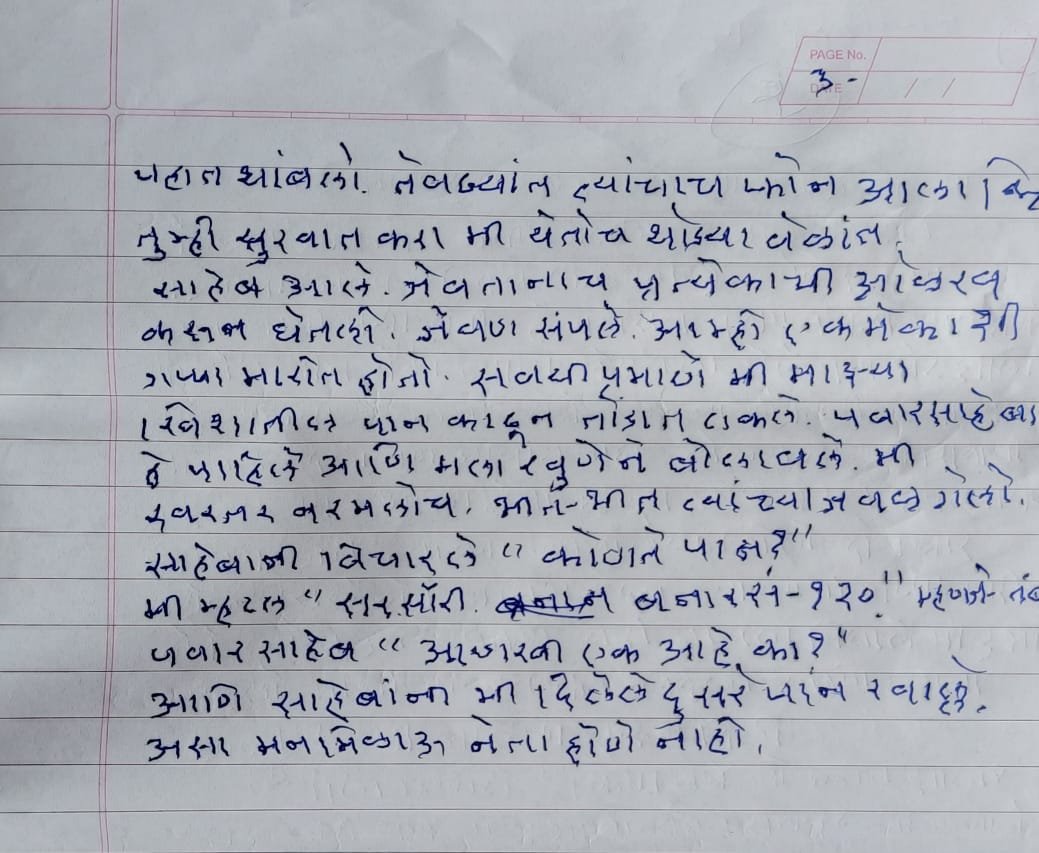 PAGE No.
DATE / /
3-
पहात थांबलो. तेवढ्यांत त्यांचाच फोन आला कि
तुम्ही सुरवात करा मी येतोच थोड्या वेळांत.
साहेब आले. जेवतानाच प्रत्येकाची ओळख
करून घेतली. जेवण संपले. आम्ही एकमेकांशी
गप्पा मारीत होतो. सवयी प्रमाणे मी माझ्या
खिशातील पान काढून तोंडात टाकले. पवारसाहेबा
हे पाहिले आणि मला खुणेने बोलावले. मी
वरमलोच. भीत-भीत त्यांच्या जवळ गेलो.
साहेबांनी विचारले "कोणते पान?"
मी म्हटले "सर सॉरी. बनारसं-१२०" म्हणजे तं
पवार साहेब "आणखी एक आहे का?"
आणि साहेबांना मी दिलेले दुसरे पान खाल्ले.
असा मनमिळाऊ नेता होणे नाही.